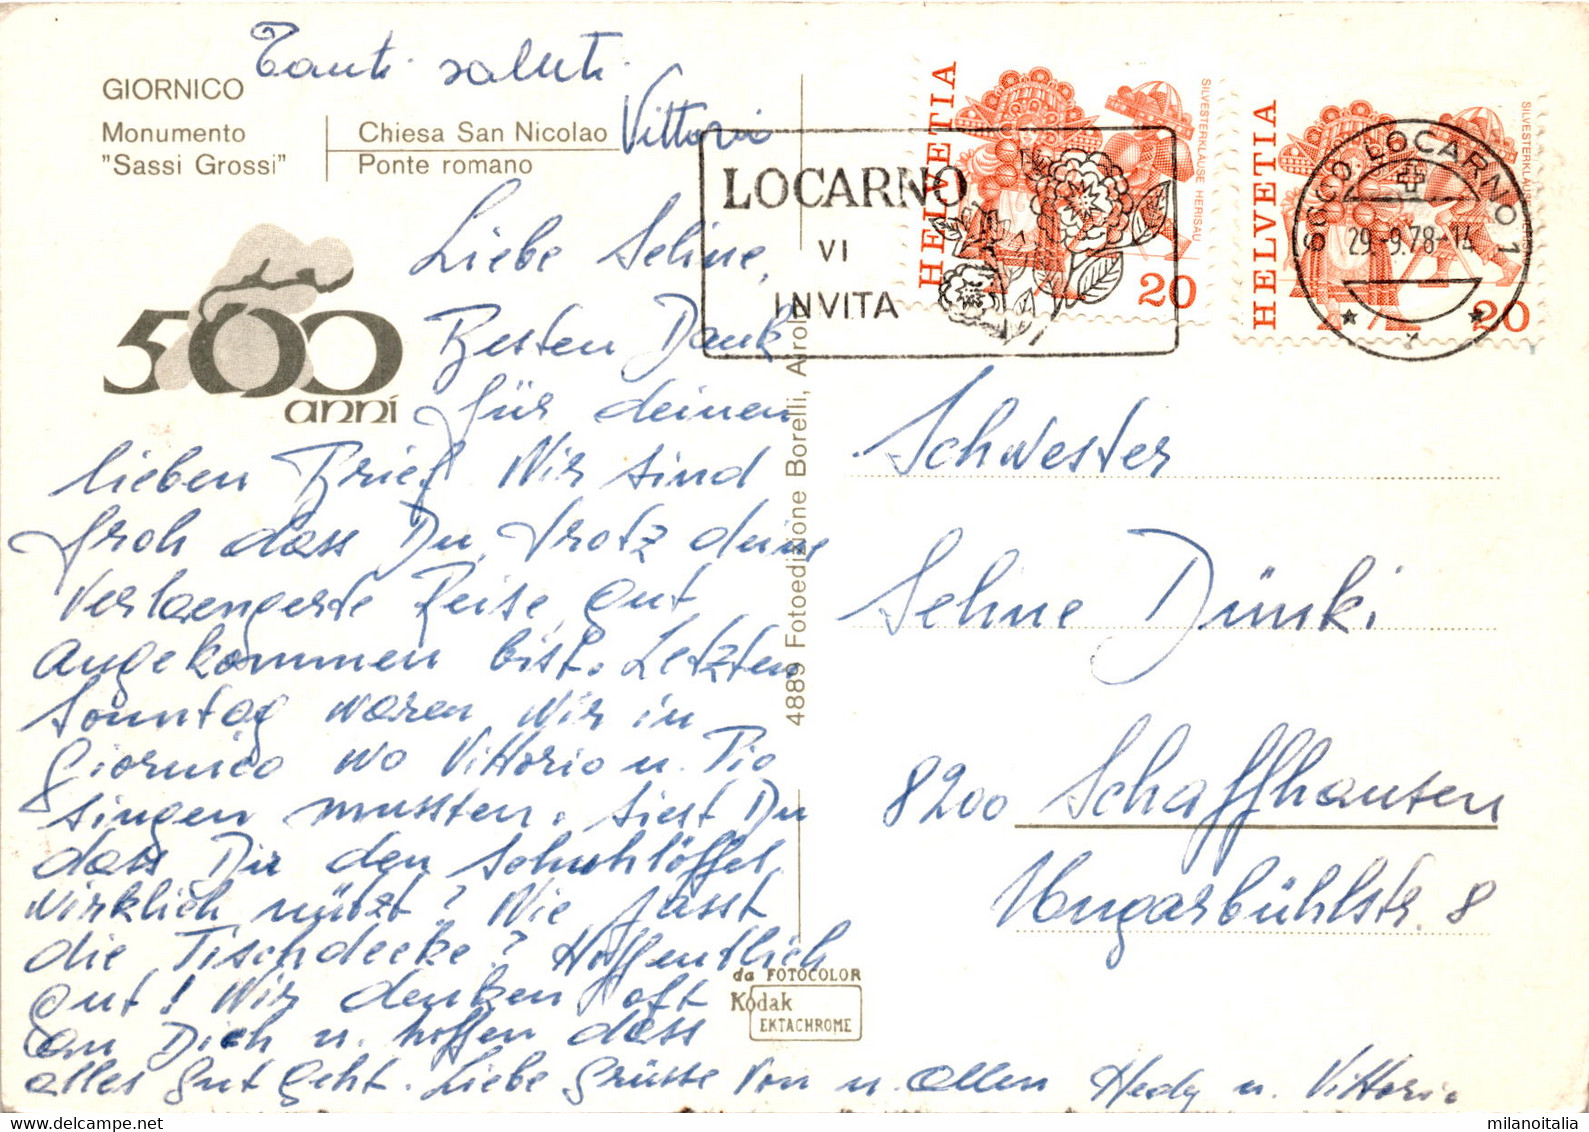 Tanti saluti.
Vittorio
GIORNICO
Monumento
"Sassi Grossi"
Chiesa San Nicolao
Ponte romano
500
anni
Liebe Seline,
Besten Dank
für deinen
lieben Brief. Wir sind
froh dass Du, trotz deine
verlaengerte Reise, gut
angekommen bist. Letzten
Sonntag waren wir in
Giornico wo Vittorio u. Pio
singen mussten. Siest Du
dass Dir den Schuhlöffel
wirklich nützt? Wie passt
die Tischdecke? Hoffentlich
gut! Wir denken oft
an Dich u. hoffen dass
alles gut geht. Liebe Grüsse von u. allen Hedy u. Vittorio
4889 Fotoedizione Borelli, Airolo
da FOTOCOLOR
Kodak
EKTACHROME
LOCARNO
VI
INVITA
HELVETIA
SILVESTERKLÄUSE HERISAU
20
HELVETIA
SILVESTERKLÄUSE
20
6600 LOCARNO 1
29.-9.78-14
Schwester
Seline Dünki
8200 Schaffhausen
Ungarbühlstr. 8
milanoitalia